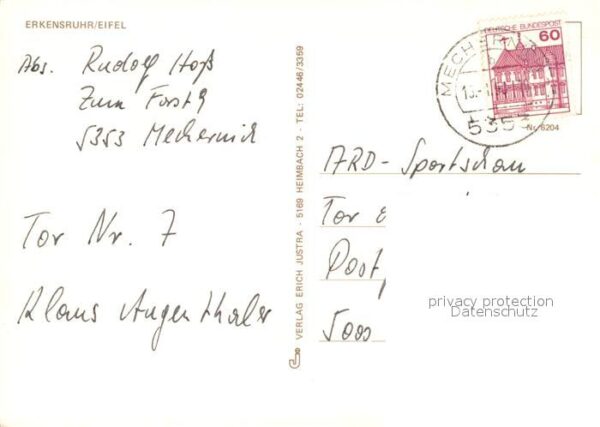 ERKENSRUHR/EIFEL
Abs. Rudolf Hoß
Zum Forst 9
5353 Mechernich
Tor Nr. 7
Klaus Augenthaler
VERLAG ERICH JUSTRA - 5169 HEIMBACH 2 - TEL: 02446/3359
DEUTSCHE BUNDESPOST
60
5353
Nr. 6204
ARD- Sportschau
Tor
Post
5000
privacy protection
Datenschutz